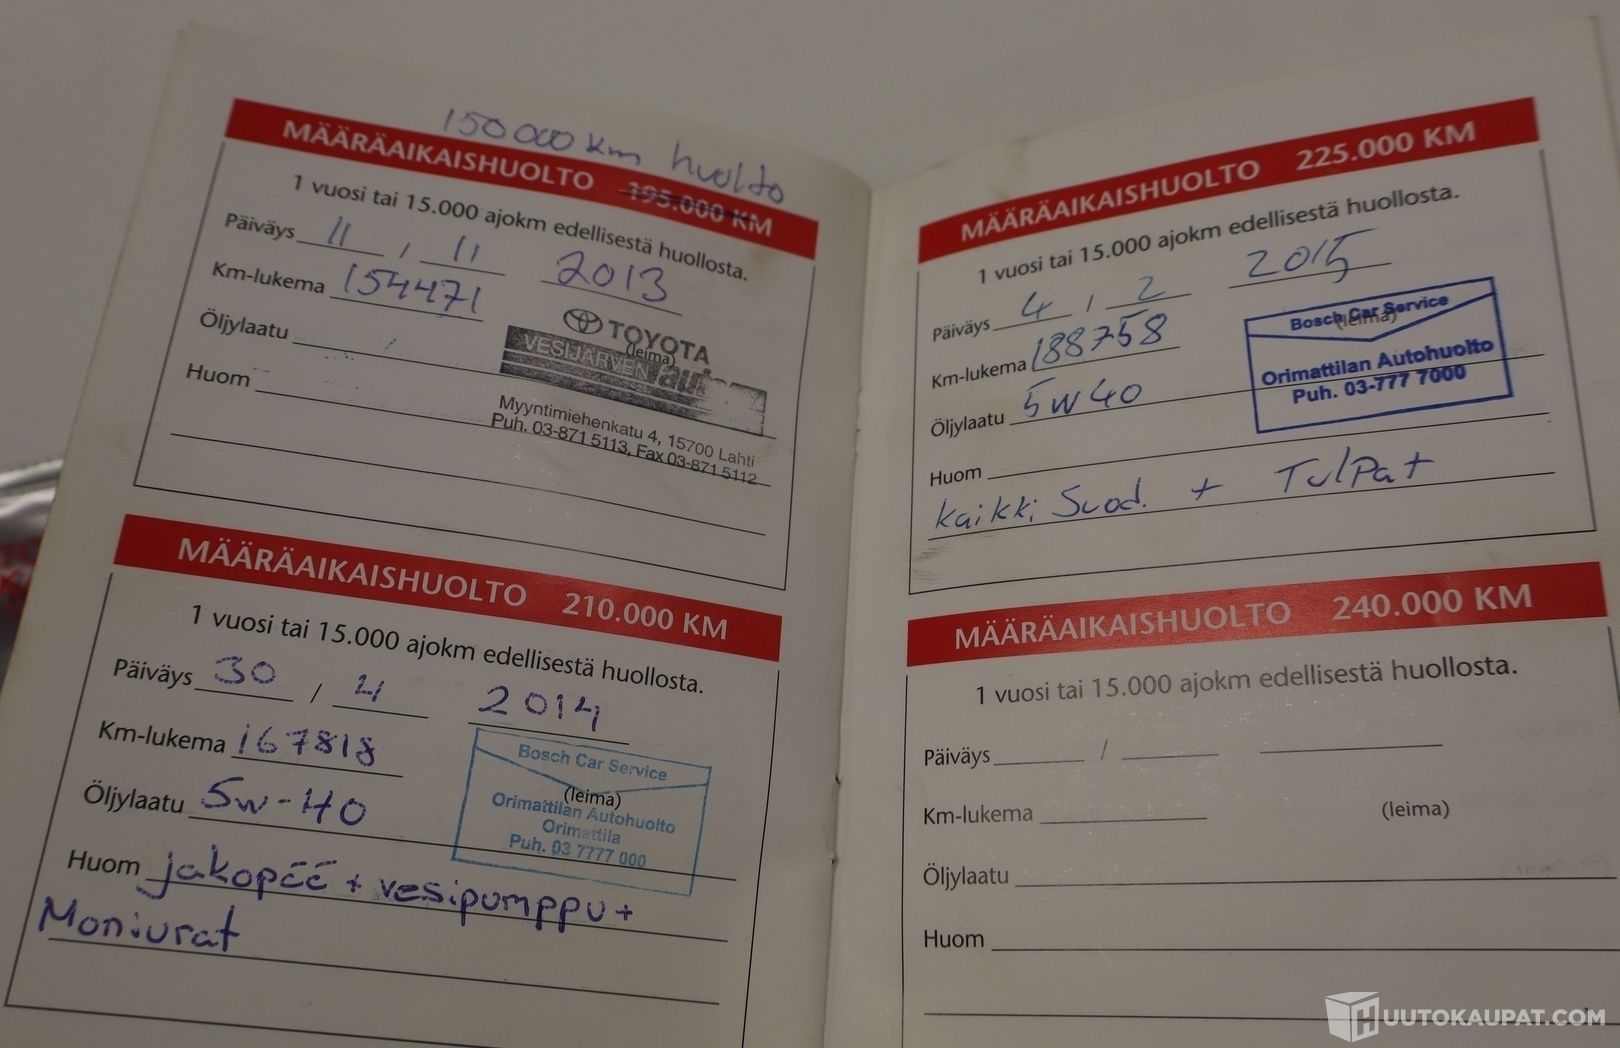 150000 km huolto
MÄÄRÄAIKAISHUOLTO 195.000 KM
1 vuosi tai 15.000 ajokm edellisestä huollosta.
Päiväys 11 / 11 2013
Km-lukema 154471
TOYOTA
(leima)
VESIJÄRVEN auto
Öljylaatu
Huom
Myyntimiehenkatu 4, 15700 Lahti
Puh. 03-871 5113, Fax 03-871 5112
MÄÄRÄAIKAISHUOLTO 210.000 KM
1 vuosi tai 15.000 ajokm edellisestä huollosta.
Päiväys 30 / 4 2014
Km-lukema 167818
Bosch Car Service
(leima)
Orimattilan Autohuolto
Orimattila
Puh. 03 7777 000
Öljylaatu 5w-40
Huom jakopää + vesipumppu +
Moniurat
MÄÄRÄAIKAISHUOLTO 225.000 KM
1 vuosi tai 15.000 ajokm edellisestä huollosta.
Päiväys 4 / 2 2015
Km-lukema 188758
Bosch Car Service
(leima)
Orimattilan Autohuolto
Puh. 03-777 7000
Öljylaatu 5w40
Huom
kaikki Suod. + TulPat
MÄÄRÄAIKAISHUOLTO 240.000 KM
1 vuosi tai 15.000 ajokm edellisestä huollosta.
Päiväys /
Km-lukema (leima)
Öljylaatu
Huom
HUUTOKAUPAT.COM